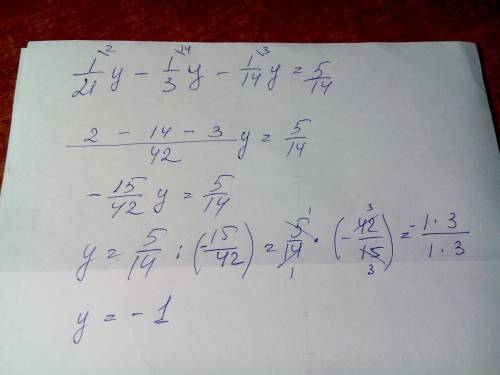 1/21 y² - 1/3 y¹⁴ - 1/14 y³ = 5/14
(2 - 14 - 3)/42 y = 5/14
- 15/42 y = 5/14
y = 5/14 : (-15/42) = 5/14 · (-42/15) = -1·3/1·3
y = - 1